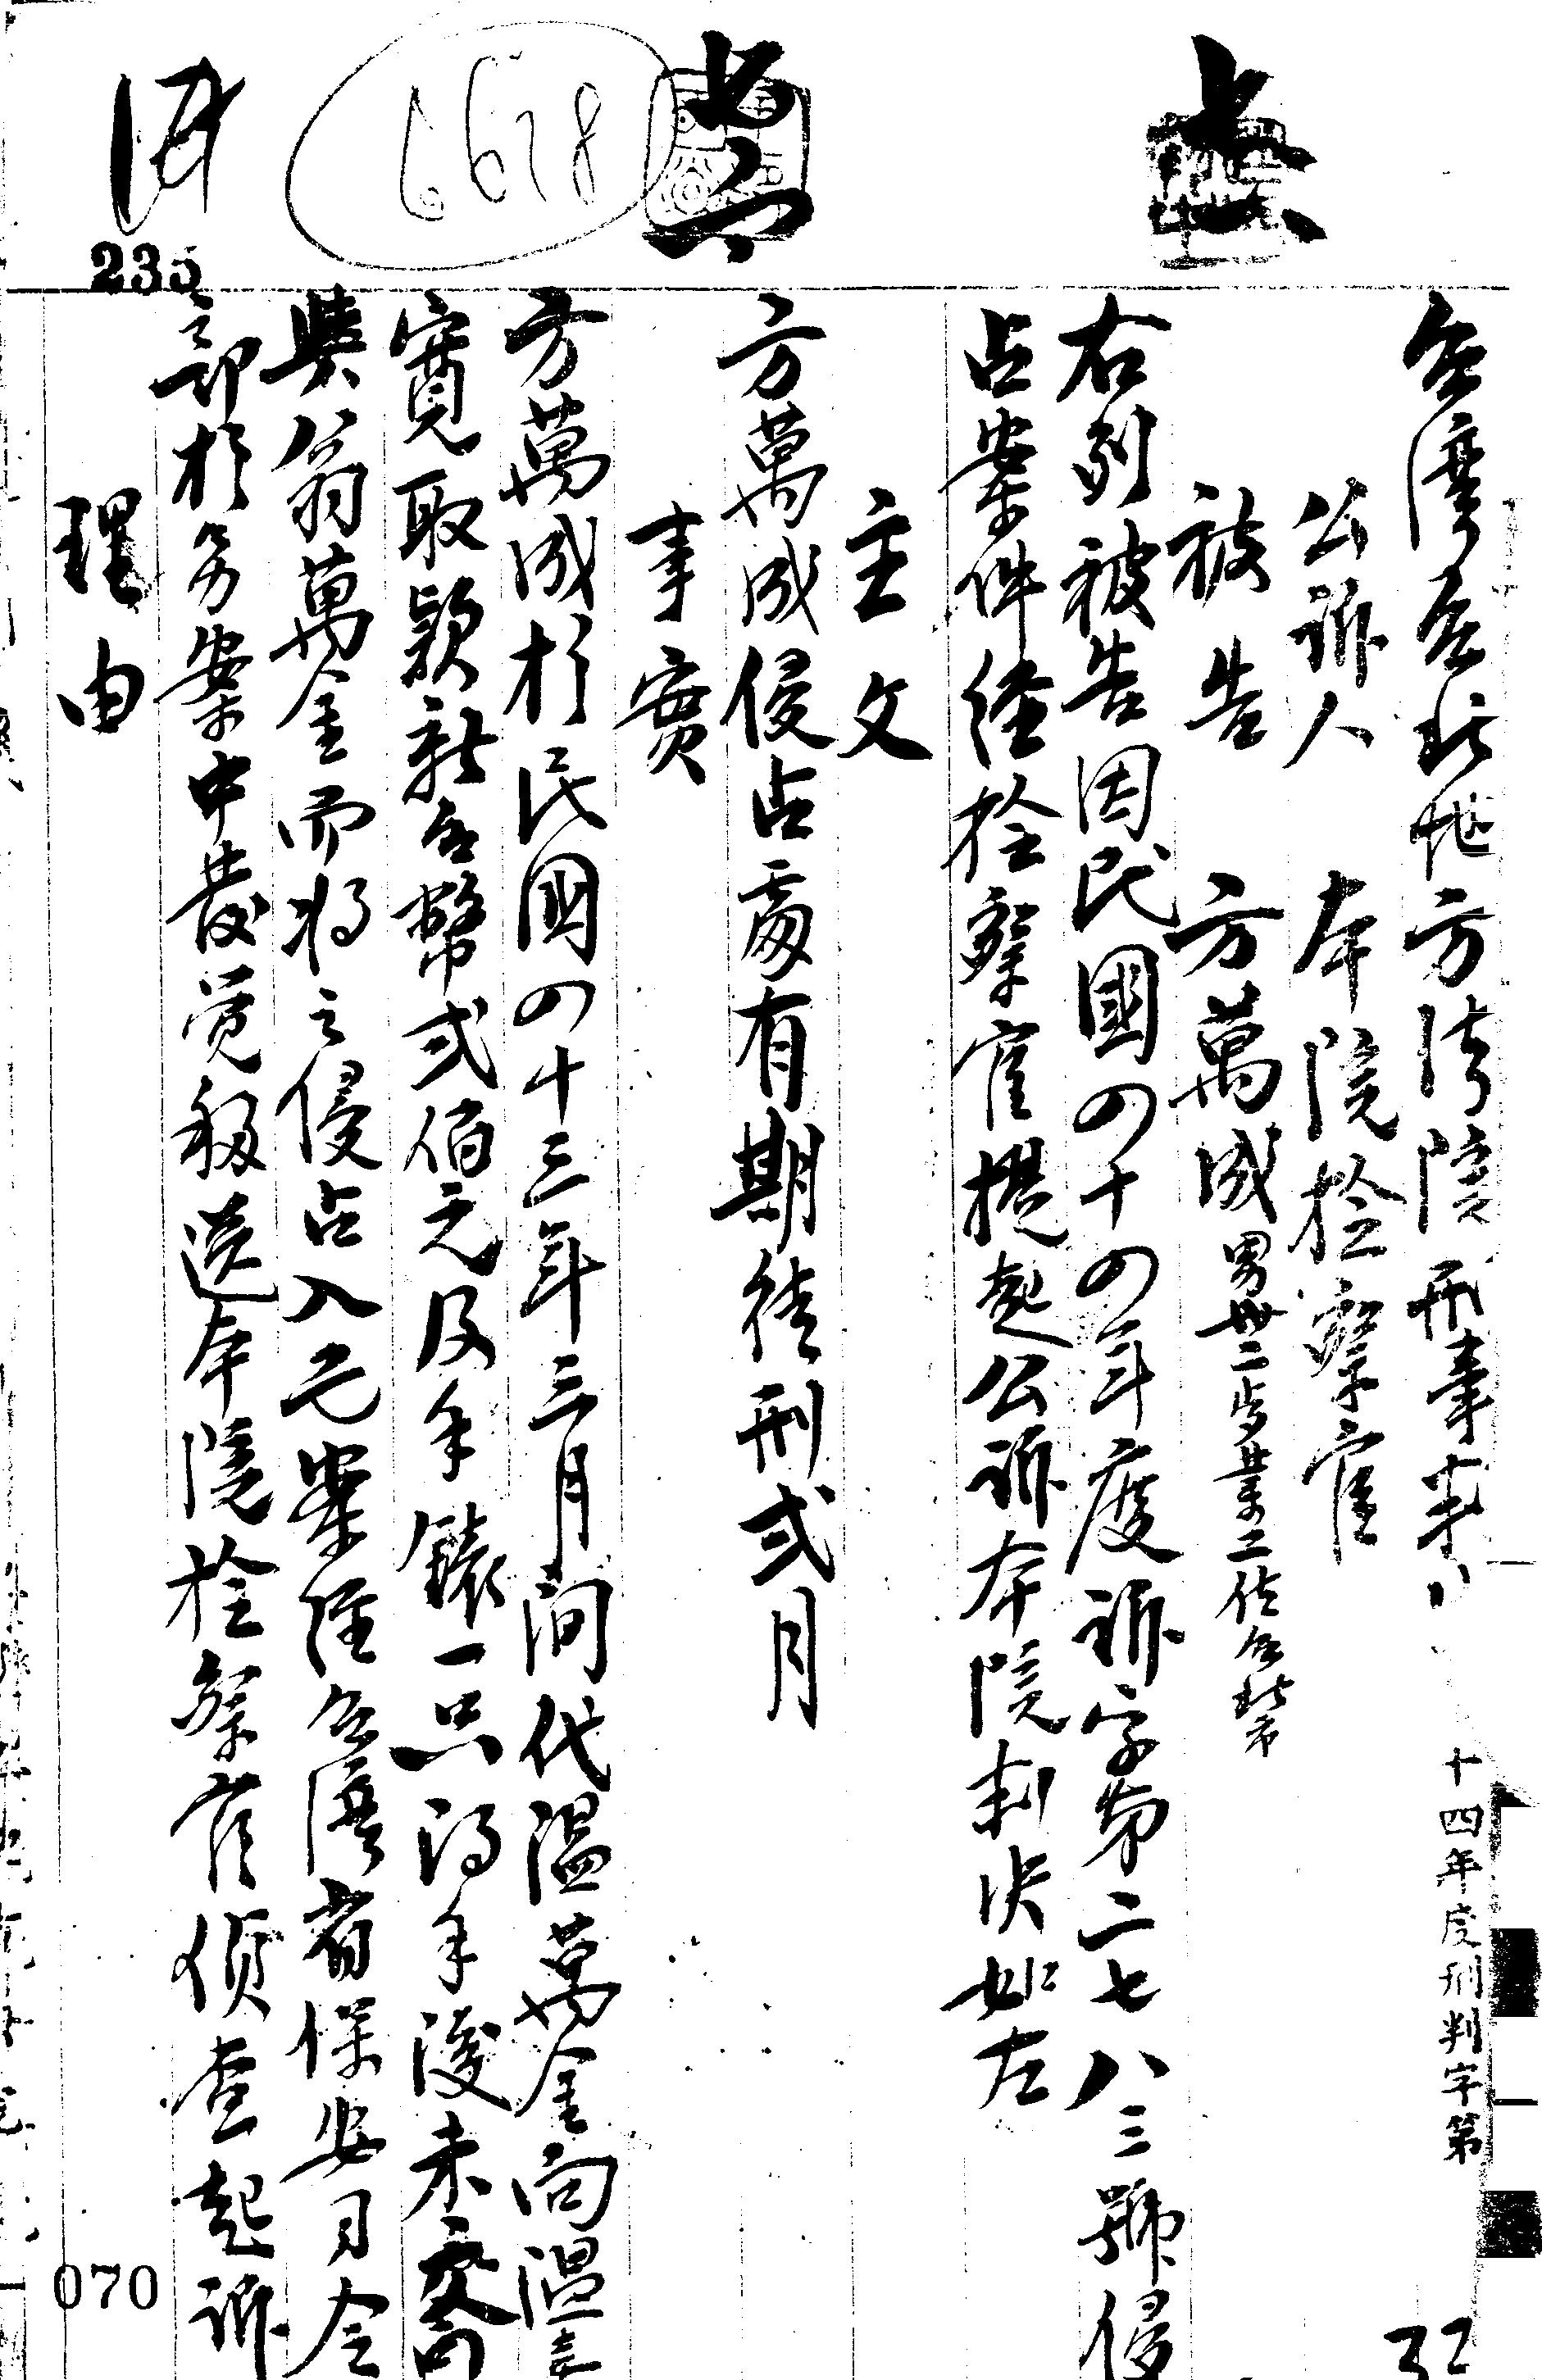 台灣台北地方法院刑事判
十四年度刑判字第
公訴人 本院檢察官
被告 方萬成 男卅二歲業工住台北市
右列被告因民國四十四年度訴字第二七八三號侵
占案件經檢察官提起公訴本院判決如左
主文
方萬成侵占處有期徒刑弍月
事實
方萬成於民國四十三年三月間代溫萬金向溫
寬取款新台幣弍佰元及手錶一只得手後未交
與翁萬金而將之侵占入己案經台灣省保安司令
部於另案中發覺移送本院檢察官偵查起訴
理由
6628
235
070